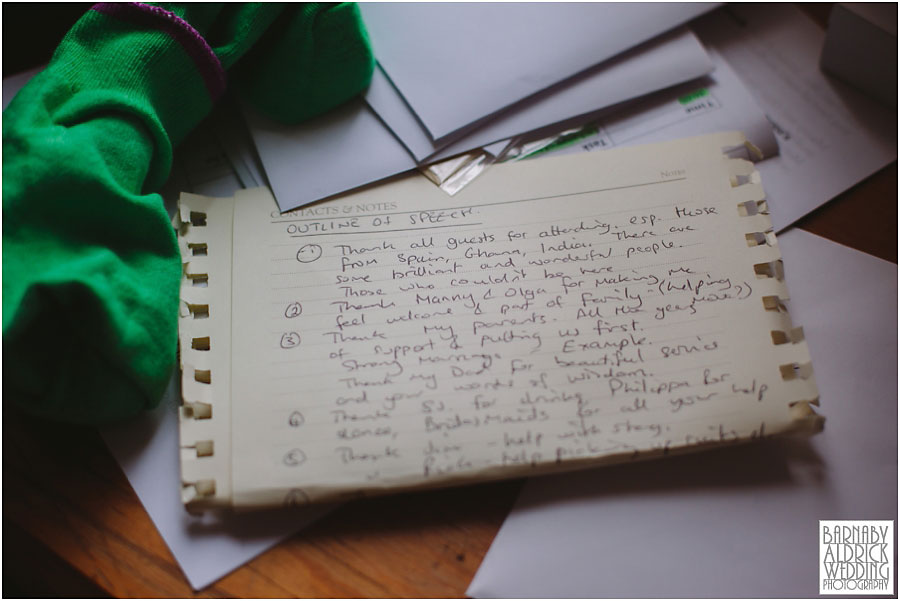 Time
Task
CONTACTS & NOTES
Notes
OUTLINE OF SPEECH.
① Thank all guests for attending, esp. those
from Spain, Ghana, India. There are
some brilliant and wonderful people.
Those who couldn't be here
② Thank Manny & Olga for making me
feel welcome & part of family - (helping move?)
③ Thank my parents. All the years
of support & putting us first.
Strong Marriage - Example.
Thank my Dad for beautiful service
and your words of wisdom.
④ Thank for driving, Philippa for
BridesMaids for all your help
⑤ Thank - help with stag.
- help picking up suits
BARNABY
ALDRICK
WEDDING
PHOTOGRAPHY